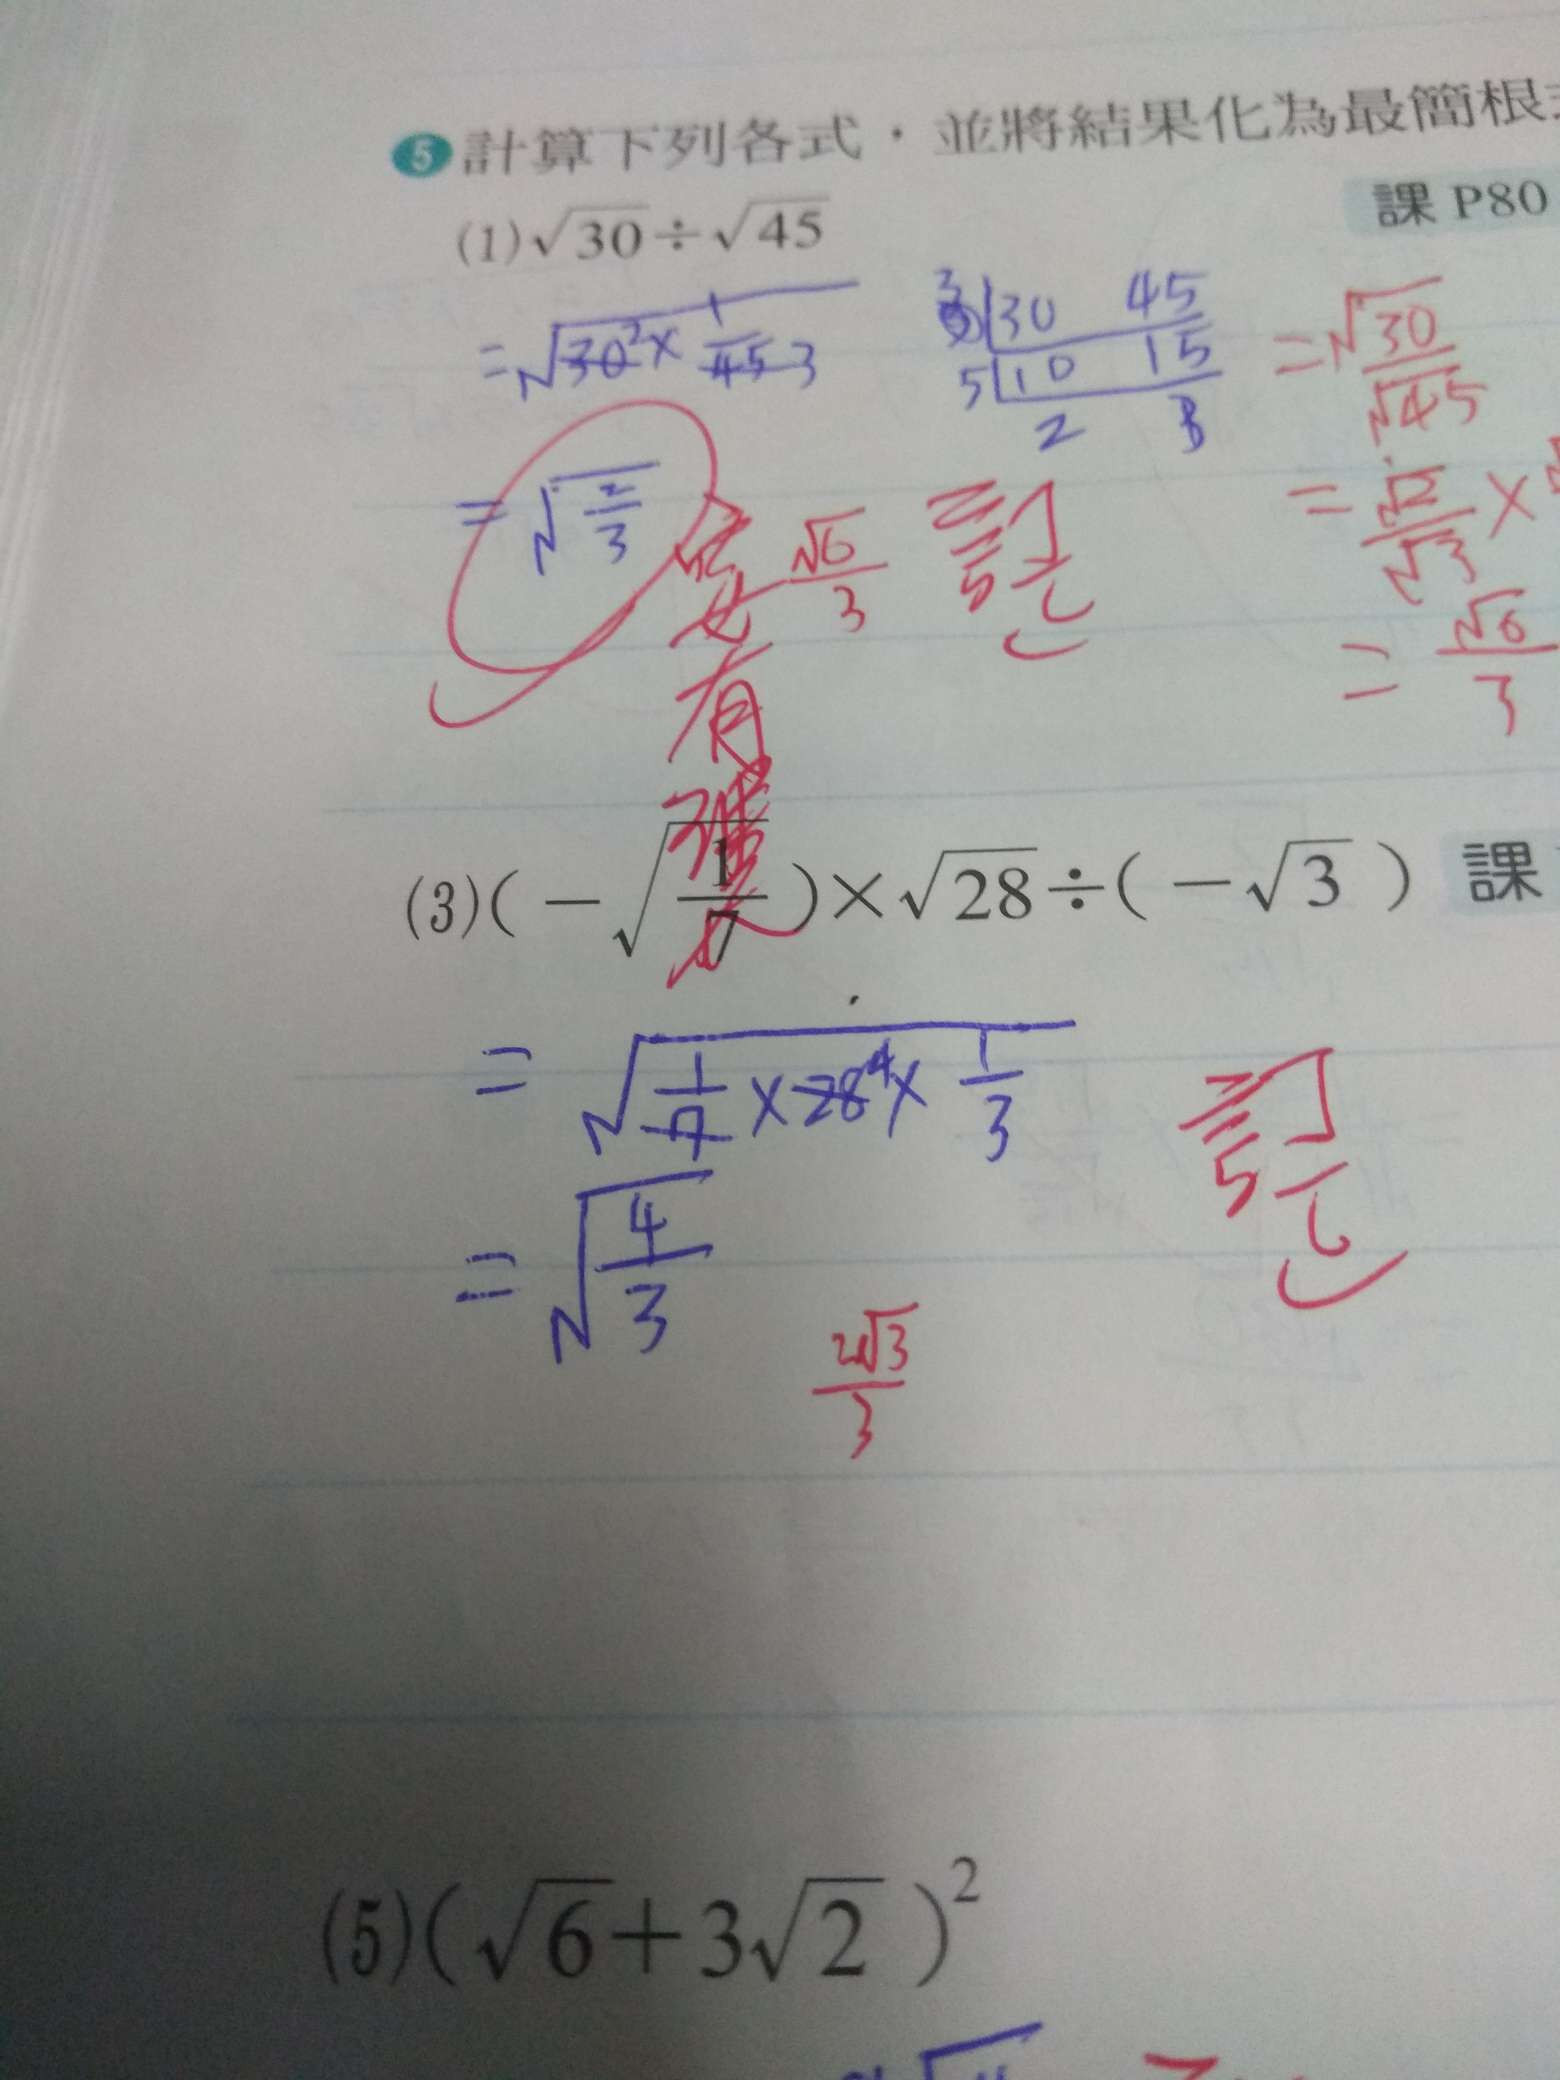 5 計算下列各式，並將結果化為最簡根
課 P80
(1)√30÷√45
=√(30² × 1/45 3)
3 30 45
5 10 15
2 3
=√30/√45
=√(2/3)
√6/3
訂正
=√2/√3 ×
=√6/3
有
(3)(-√(1/7))×√28÷(-√3) 課
=√(1/7 × 28⁴ × 1/3)
訂正
=√(4/3)
2√3/3
(5)(√6+3√2)²